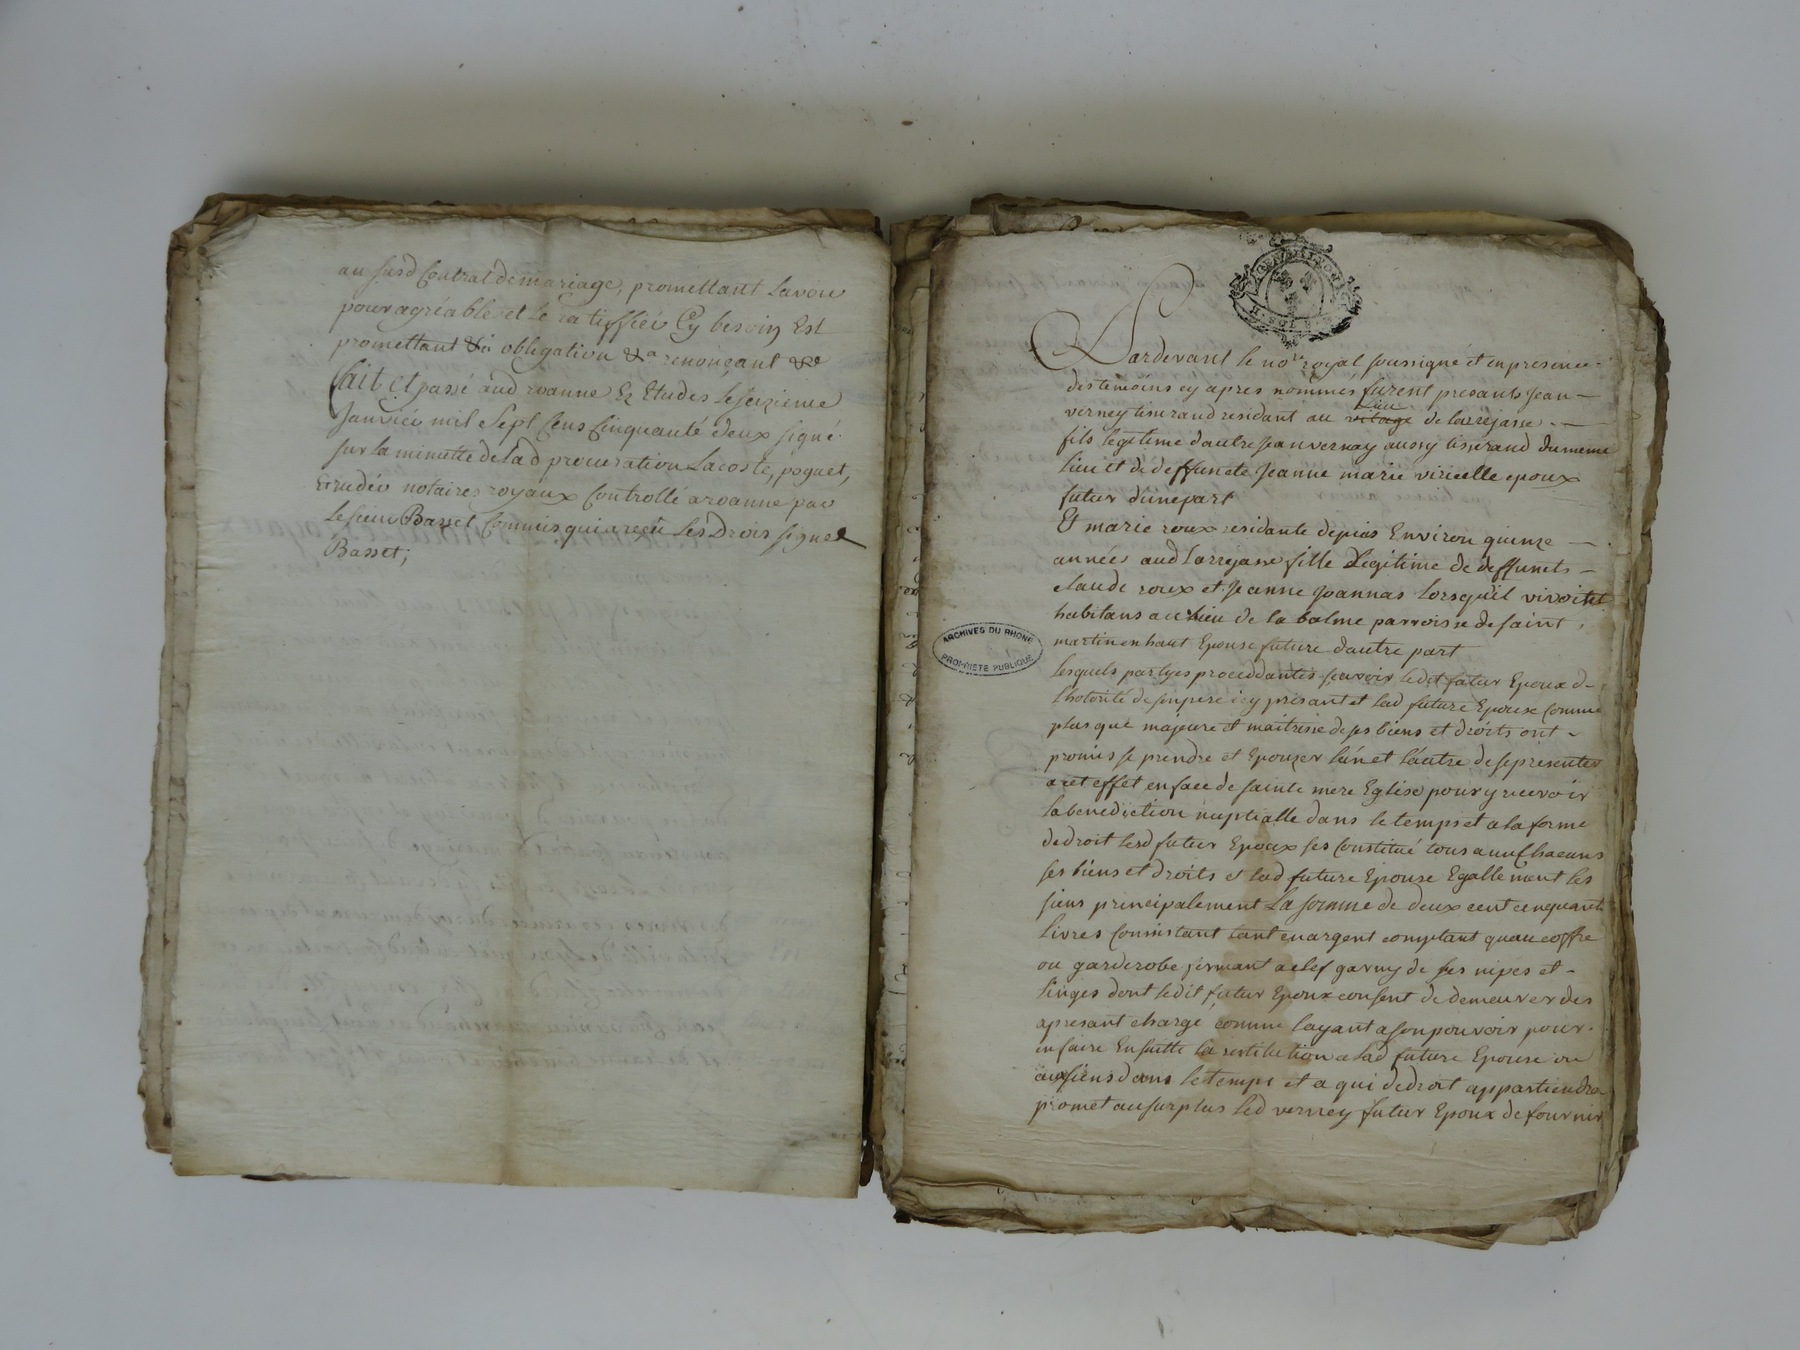 au susd Contrat de mariage, promettant Lavoir
pour agréable et Le ratiffier Cy besoin Est
promettant &a obligation &a renonçant &a
fait Et passé aud roanne Ez Etudes Le seizieme
Janvier mil Sept Cens Cinquante deux signé
sur la minutte de lad procuration Lacoste, poguet,
Erudée notaires royaux Controllé a roanne par
Le sieur Basset Commis qui a reçu Les Drois signé
Basset;
GENERALITE DE LYON
Pardevant le nore royal soussigné et en presence
des temoins cy apres nommés furent presants Jean
verney tisserand residant au vilage Lieu de larejasse
fils legitime d'autre Jean vernay aussy tisserand du meme
lieu et de deffuncte Jeanne marie viricelle epoux
futur d'une part
Et marie roux residante depuis Environ quinze
années aud Larrejasse fille Legitime de deffunts
claude roux et Jeanne Joannas lorsqu'il vivoitet
habitans au lieu de la balme parroisse de saint
martin en haut Epouse future dautre part
lesquels partyes proceddantes scavoir ledit futur Epoux d
lhotorité de son pere icy présant et lad future Epouse comme
plus que majeure et maitrisse de ses biens et droits ont
promis se prendre et Epouzer lun et lautre de se presenter
a cet effet en face de sainte mere Eglise pour y recevoir
la benediction nuptialle dans le temps et a la forme
de droit lesd futur Epoux ses constitué tous a un chacuns
ses biens et droits et lad future Epouse Egallement les
siens principalement La somme de deux cent cinquante
livres consistant tant en argent comptant quau coffre
ou garderobe fermant a clef garny de ses nipes et
linges dont ledit futur Epoux consent de demeurer des
apresant chargé comme layant a son pouvoir pour
en faire Ensuitte la restitution a lad future Epouse ou
aux siens dans le temps et a qui de droit appartiendra
promet au surplus led verney futur Epoux de fournir
ARCHIVES DU RHONE
PROPRIETE PUBLIQUE